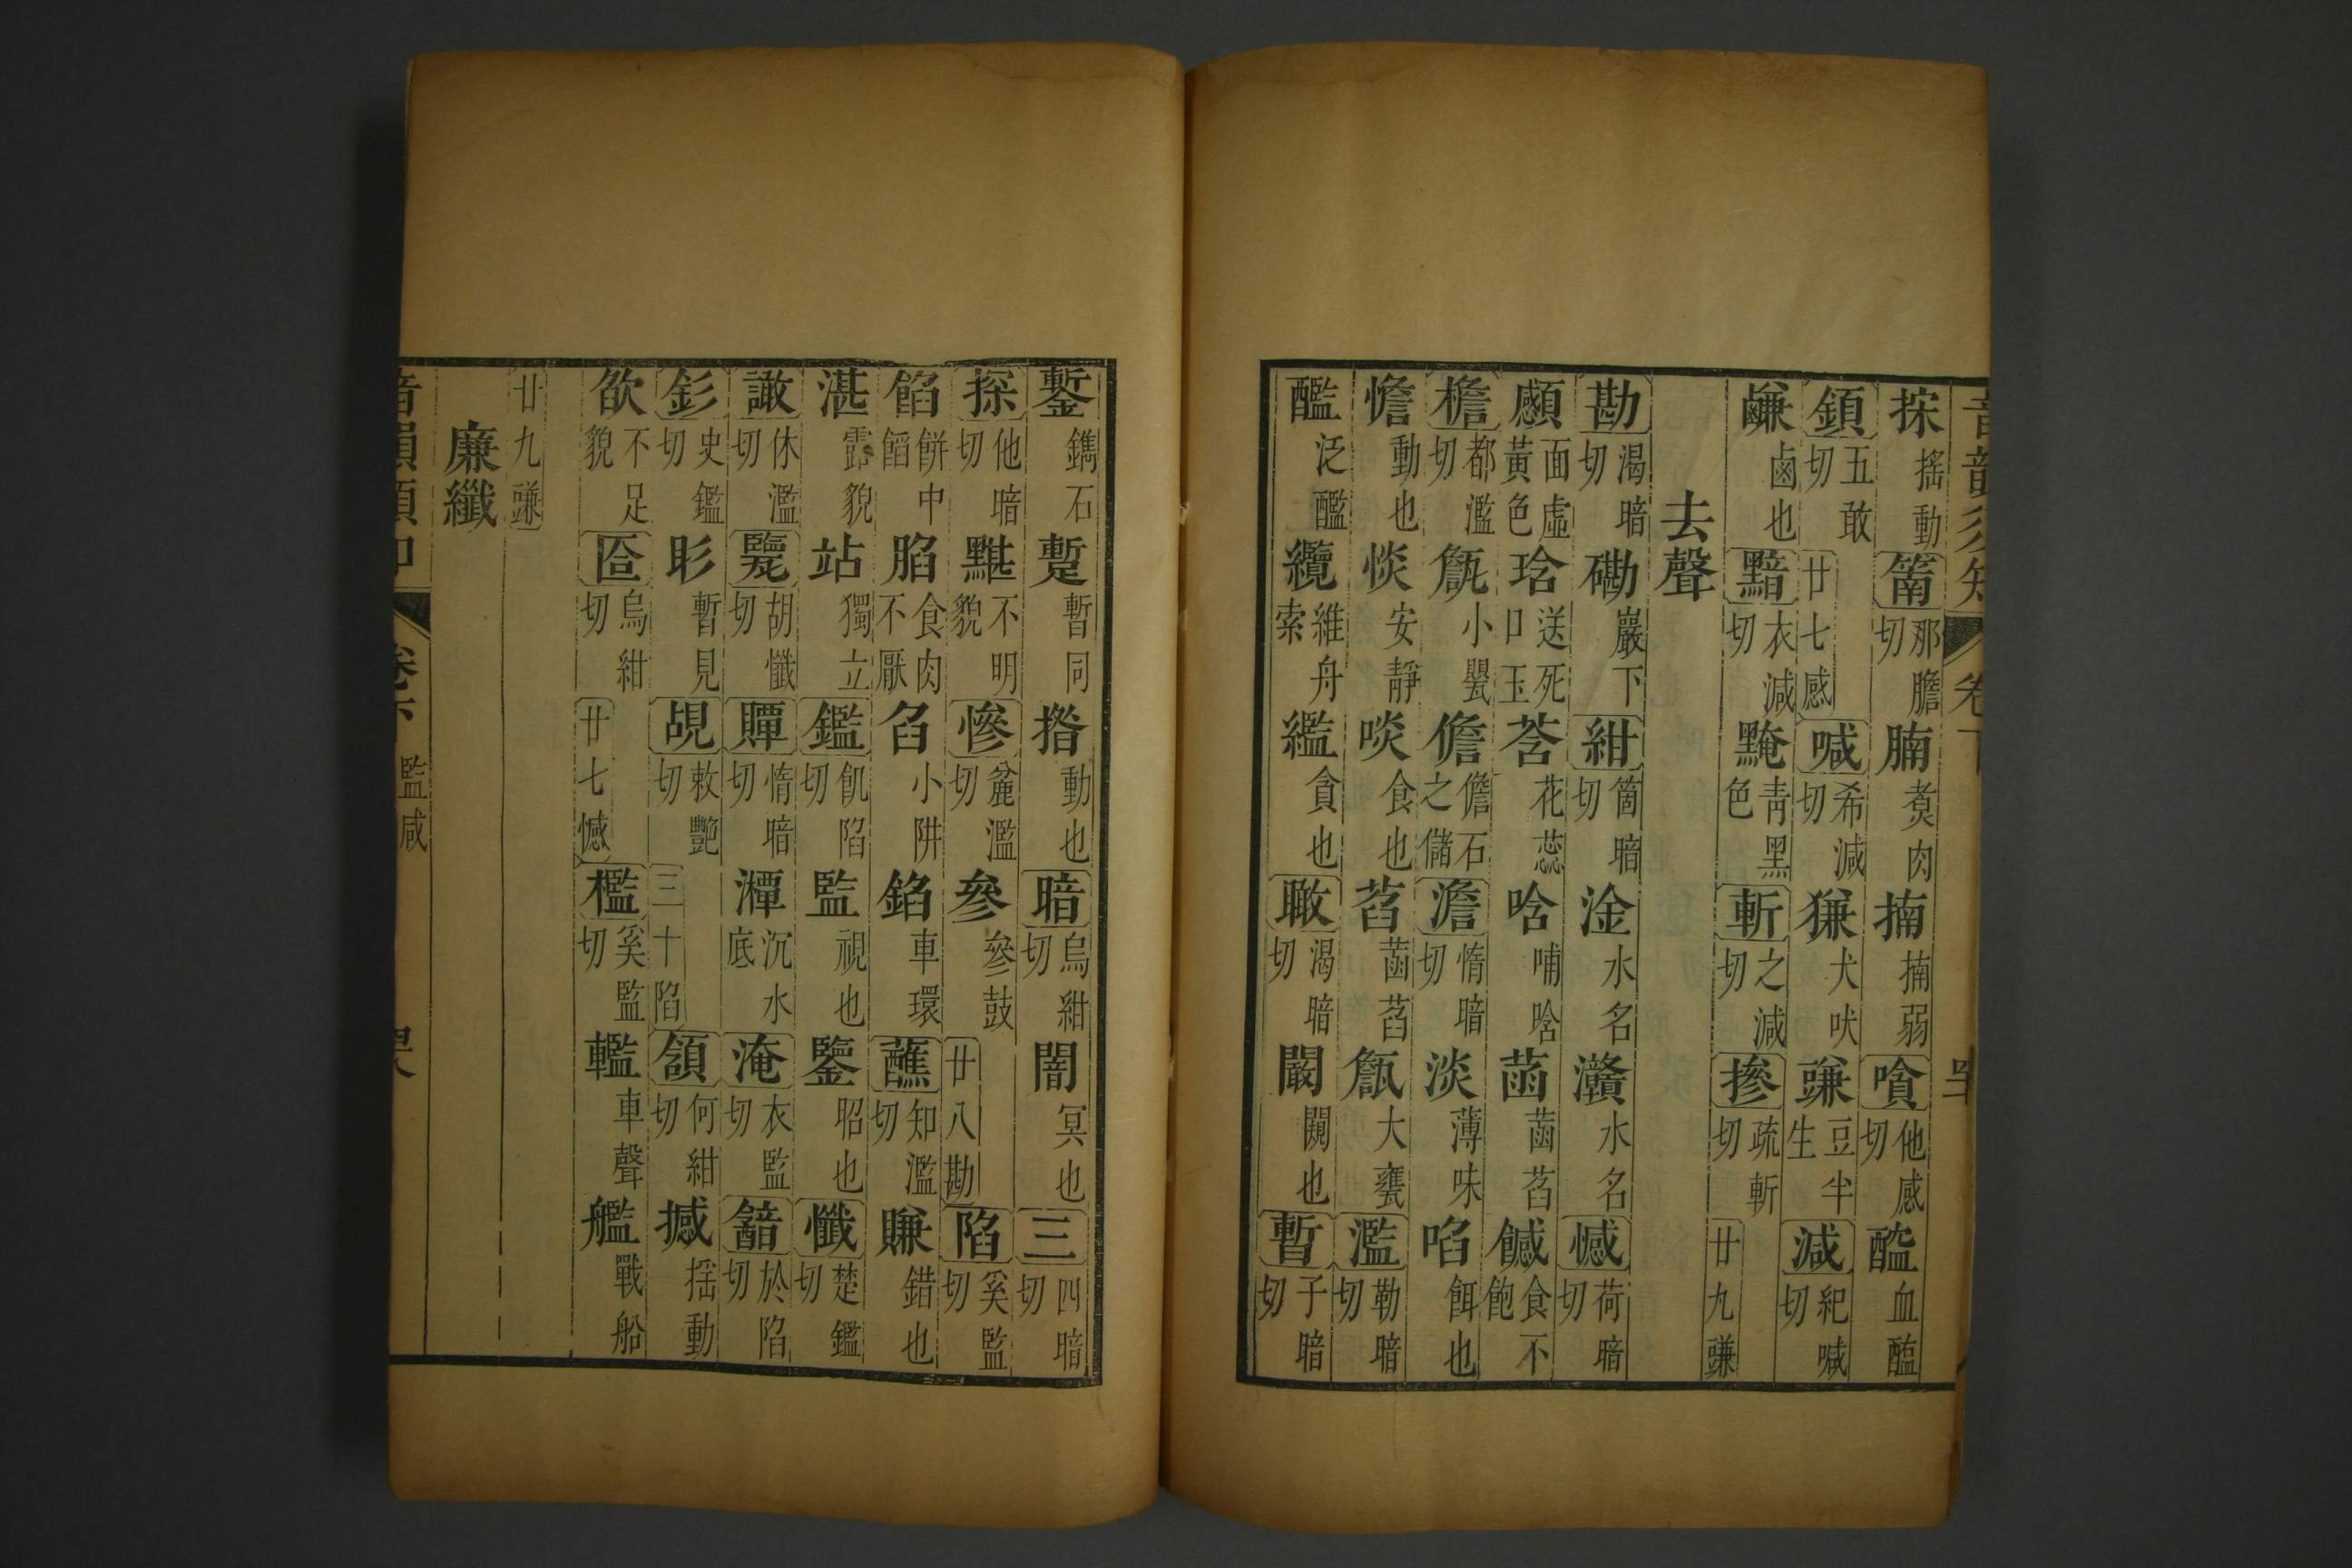 音韻須知 卷下
㨆 搖動 䈒 那膽切 腩 煮肉 揇 揇弱 嗿 他感切 醓 血醢
顉 五敢切 廿七感 喊 希減切 㺌 犬吠 豏 豆半生 減 紀喊切
鹻 鹵也 黯 衣減切 黤 青黑色 斬 之減切 摻 疏斬切 廿九豏
去聲
勘 渴暗切 磡 巖下 紺 箇暗切 淦 水名 灨 水名 憾 荷暗切
顑 面虛黃色 琀 送死口玉 莟 花蕊 唅 哺唅 菡 菡萏 䫲 食不飽
檐 都濫切 甔 小甖 儋 儋石之儲 澹 惰暗切 淡 薄味 啗 餌也
憺 動也 惔 安靜 啖 食也 萏 菡萏 甔 大甕 濫 勒暗切
醶 泛醶 纜 維舟索 㜮 貪也 瞰 渴暗切 闞 闚也 暫 子暗切
鏨 鐫石 蹔 暫同 揝 動也 暗 烏紺切 闇 冥也 三 四暗切
探 他暗切 黮 不明貌 慘 麄濫切 參 參鼓 廿八勘 陷 奚監切
餡 餅中餡 䐄 食肉不厭 臽 小阱 錎 車環 蘸 知濫切 賺 錯也
湛 露貌 站 獨立 鑑 飢陷切 監 視也 鑒 昭也 懺 楚鑑切
譀 休濫切 甉 胡懺切 贉 惰暗切 潬 沉水底 淹 衣監切 韽 於陷切
釤 史鑑切 䀐 暫見 覘 敕艷切 三十陷 頷 何紺切 撼 搖動
欿 不足貌 匼 烏紺切 廿七憾 檻 奚監切 轞 車聲 艦 戰船
廿九豏
廉纖
音韻須知 卷下 監咸